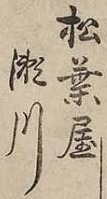 松葉屋
瀬川